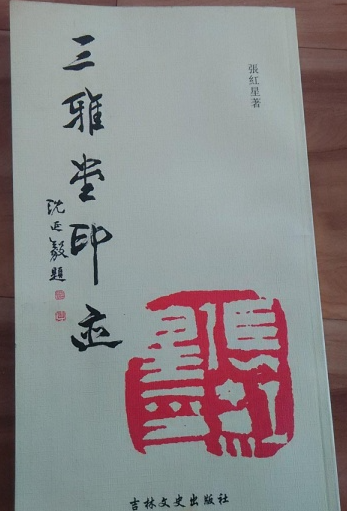 張紅星著
三雅堂印迹
沈延毅題
張紅星印
吉林文史出版社